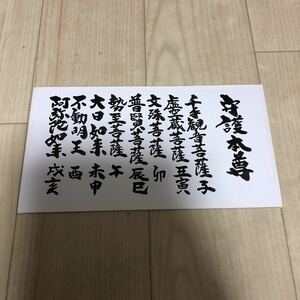 守護本尊
千手観音菩薩 子
虚空蔵菩薩 丑寅
文殊菩薩 卯
普賢菩薩 辰巳
勢至菩薩 午
大日如来 未申
不動明王 酉
阿弥陀如来 戌亥